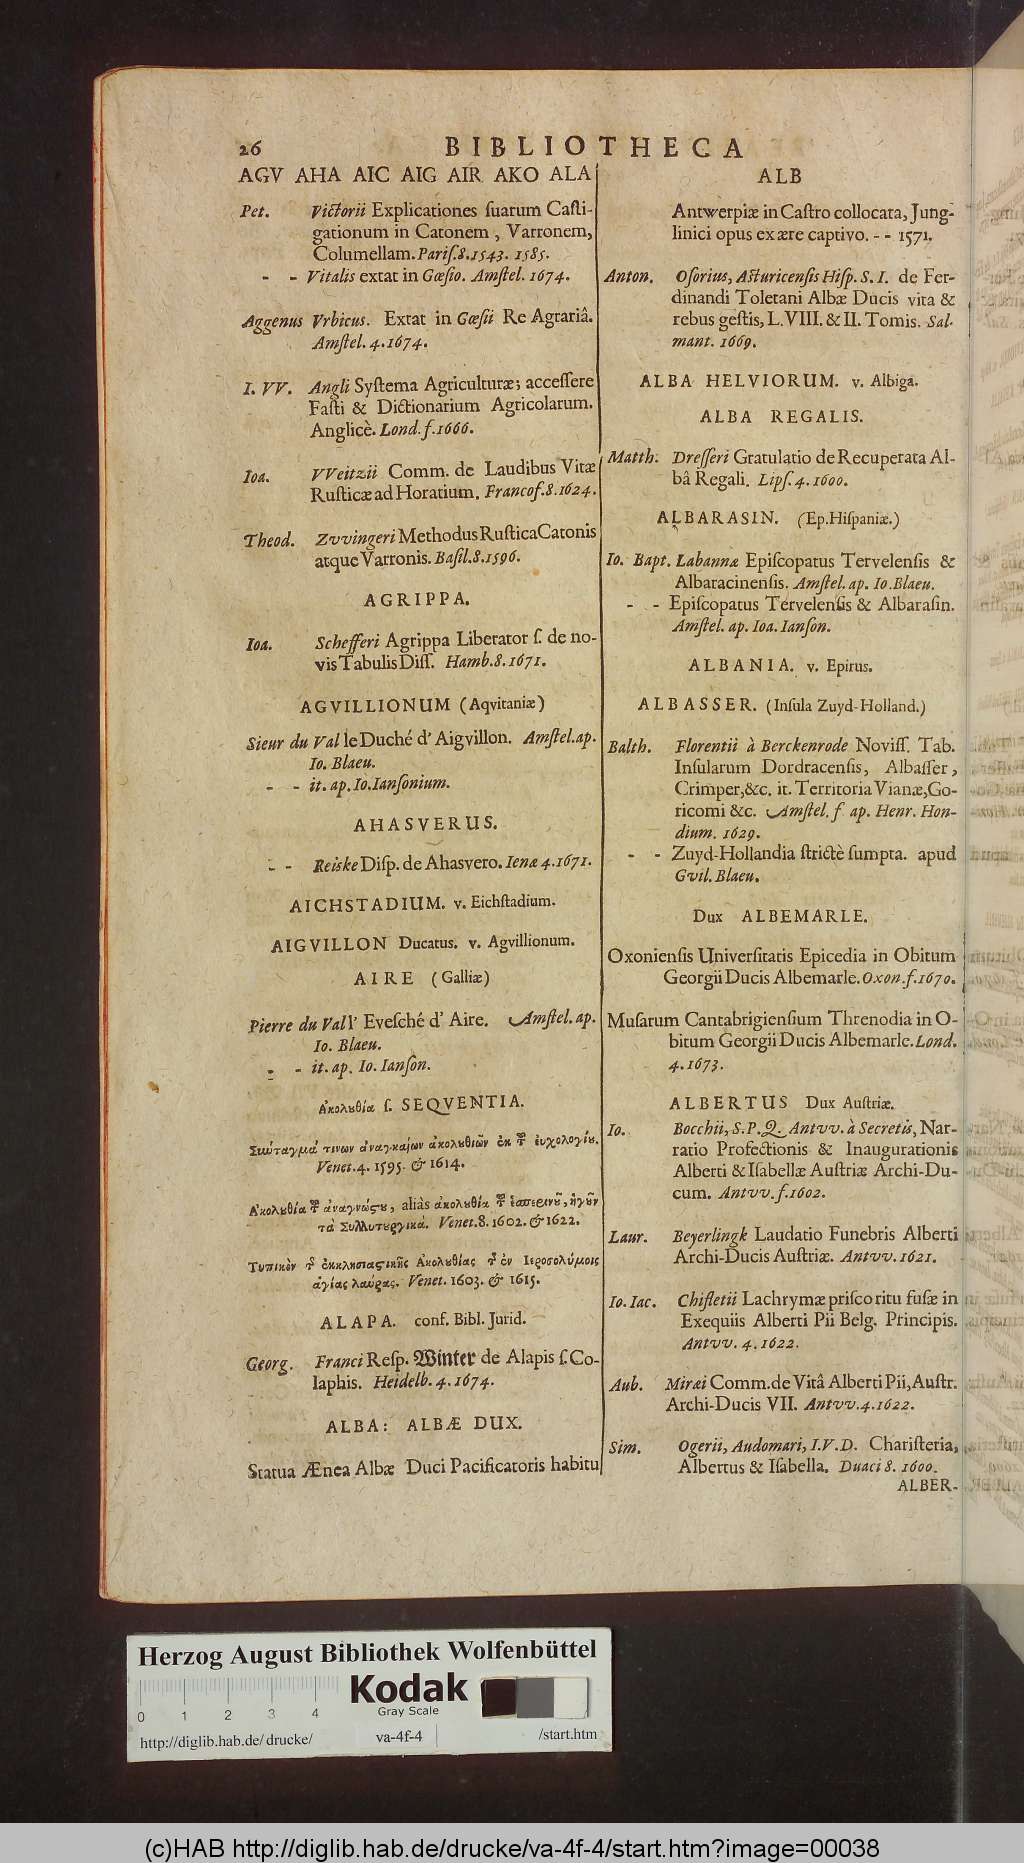 26 BIBLIOTHECA
AGV AHA AIC AIG AIR AKO ALA
Pet. Victorii Explicationes suarum Casti-
gationum in Catonem, Varronem,
Columellam. Paris. 8. 1543. 1585.
- - Vitalis extat in Gœsio. Amstel. 1674.
Aggenus Vrbicus. Extat in Gœsii Re Agrariâ.
Amstel. 4. 1674.
I. VV. Angli Systema Agriculturæ; accessere
Fasti & Dictionarium Agricolarum.
Anglicè. Lond. f. 1666.
Ioa. VVeitzii Comm. de Laudibus Vitæ
Rusticæ ad Horatium. Francof. 8. 1624.
Theod. Zvvingeri Methodus Rustica Catonis
atque Varronis. Basil. 8. 1596.
AGRIPPA.
Ioa. Schefferi Agrippa Liberator s. de no-
vis Tabulis Diss. Hamb. 8. 1671.
AGVILLIONUM (Aqvitaniæ)
Sieur du Val le Duché d' Aigvillon. Amstel. ap.
Io. Blaeu.
- - it. ap. Io. Iansonium.
AHASVERUS.
- - Reiske Disp. de Ahasvero. Ienæ 4. 1671.
AICHSTADIUM. v. Eichstadium.
AIGVILLON Ducatus. v. Agvillionum.
AIRE (Galliæ)
Pierre du Val l' Evesché d' Aire. Amstel. ap.
Io. Blaeu.
- - it. ap. Io. Ianson.
Ακολουθία s. SEQVENTIA.
Σύνταγμά τινων ἀναγκαίων ἀκολουθιῶν ἐκ τοῦ εὐχολογίου.
Venet. 4. 1595. & 1614.
Ακολουθία τοῦ ἀναγνώςου, aliàs ἀκολουθία τοῦ ἑσπερινοῦ, ἤγουν
τὰ Συλλυτουργικά. Venet. 8. 1602. & 1622.
Τυπικὸν τῆς ἐκκλησιαςικῆς Ακολουθίας τῆς ἐν Ιεροσολύμοις
ἁγίας λαύρας. Venet. 1603. & 1615.
ALAPA. conf. Bibl. Jurid.
Georg. Franci Resp. Winter de Alapis s. Co-
laphis. Heidelb. 4. 1674.
ALBA: ALBÆ DUX.
Statua Ænea Albæ Duci Pacificatoris habitu
ALB
Antwerpiæ in Castro collocata, Jung-
linici opus ex ære captivo. - - 1571.
Anton. Osorius, Asturicensis Hisp. S. I. de Fer-
dinandi Toletani Albæ Ducis vita &
rebus gestis, L. VIII. & II. Tomis. Sal-
mant. 1669.
ALBA HELVIORUM. v. Albiga.
ALBA REGALIS.
Matth. Dresseri Gratulatio de Recuperata Al-
bâ Regali. Lips. 4. 1600.
ALBARASIN. (Ep. Hispaniæ.)
Io. Bapt. Labannæ Episcopatus Tervelensis &
Albaracinensis. Amstel. ap. Io. Blaeu.
- - Episcopatus Tervelensis & Albarasin.
Amstel. ap. Ioa. Ianson.
ALBANIA. v. Epirus.
ALBASSER. (Insula Zuyd-Holland.)
Balth. Florentii à Berckenrode Noviss. Tab.
Insularum Dordracensis, Albasser,
Crimper, &c. it. Territoria Vianæ, Go-
ricomi &c. Amstel. f ap. Henr. Hon-
dium. 1629.
- - Zuyd-Hollandia strictè sumpta. apud
Gvil. Blaeu.
Dux ALBEMARLE.
Oxoniensis Universitatis Epicedia in Obitum
Georgii Ducis Albemarle. Oxon. f. 1670.
Musarum Cantabrigiensium Threnodia in O-
bitum Georgii Ducis Albemarle. Lond.
4. 1673.
ALBERTUS Dux Austriæ.
Io. Bocchii, S. P. Q. Antvv. à Secretis, Nar-
ratio Profectionis & Inaugurationis
Alberti & Isabellæ Austriæ Archi-Du-
cum. Antvv. f. 1602.
Laur. Beyerlingk Laudatio Funebris Alberti
Archi-Ducis Austriæ. Antvv. 1621.
Io. Iac. Chifletii Lachrymæ prisco ritu fusæ in
Exequiis Alberti Pii Belg. Principis.
Antvv. 4. 1622.
Aub. Miræi Comm. de Vitâ Alberti Pii, Austr.
Archi-Ducis VII. Antvv. 4. 1622.
Sim. Ogerii, Audomari, I. V. D. Charisteria,
Albertus & Isabella. Duaci 8. 1600.
ALBER-
Herzog August Bibliothek Wolfenbüttel
Kodak
Gray Scale
0 1 2 3 4
http://diglib.hab.de/drucke/ va-4f-4 /start.htm
(c)HAB http://diglib.hab.de/drucke/va-4f-4/start.htm?image=00038